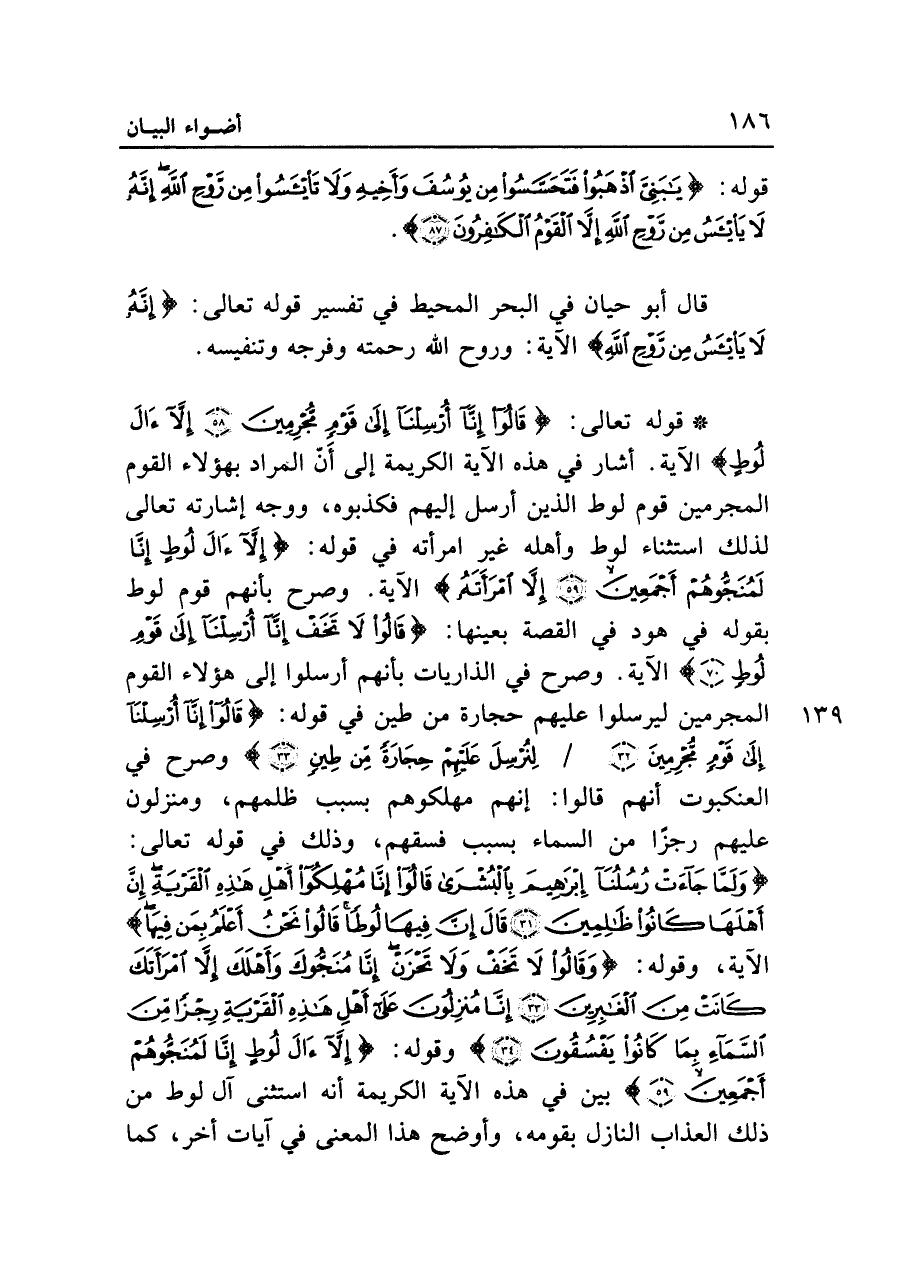 ١٨٦ أضواء البيان
قوله: ﴿يَـٰبَنِىَّ ٱذْهَبُوا۟ فَتَحَسَّسُوا۟ مِن يُوسُفَ وَأَخِيهِ وَلَا تَا۟يْـَٔسُوا۟ مِن رَّوْحِ ٱللَّهِ ۖ إِنَّهُۥ
لَا يَا۟يْـَٔسُ مِن رَّوْحِ ٱللَّهِ إِلَّا ٱلْقَوْمُ ٱلْكَـٰفِرُونَ ٨٧﴾.
قال أبو حيان في البحر المحيط في تفسير قوله تعالى: ﴿إِنَّهُۥ
لَا يَا۟يْـَٔسُ مِن رَّوْحِ ٱللَّهِ﴾ الآية: وروح الله رحمته وفرجه وتنفيسه.
* قوله تعالى: ﴿قَالُوٓا۟ إِنَّآ أُرْسِلْنَآ إِلَىٰ قَوْمٍ مُّجْرِمِينَ ٥٨ إِلَّآ ءَالَ
لُوطٍ﴾ الآية. أشار في هذه الآية الكريمة إلى أنّ المراد بهؤلاء القوم
المجرمين قوم لوط الذين أرسل إليهم فكذبوه، ووجه إشارته تعالى
لذلك استثناء لوط وأهله غير امرأته في قوله: ﴿إِلَّآ ءَالَ لُوطٍ إِنَّا
لَمُنَجُّوهُمْ أَجْمَعِينَ ۙ ٥٩ إِلَّا ٱمْرَأَتَهُۥ﴾ الآية. وصرح بأنهم قوم لوط
بقوله في هود في القصة بعينها: ﴿قَالُوا۟ لَا تَخَفْ إِنَّآ أُرْسِلْنَآ إِلَىٰ قَوْمِ
لُوطٍ ٧٠﴾ الآية. وصرح في الذاريات بأنهم أرسلوا إلى هؤلاء القوم
المجرمين ليرسلوا عليهم حجارة من طين في قوله: ﴿قَالُوٓا۟ إِنَّآ أُرْسِلْنَآ ١٣٩
إِلَىٰ قَوْمٍ مُّجْرِمِينَ ٣٢ / لِنُرْسِلَ عَلَيْهِمْ حِجَارَةً مِّن طِينٍ ٣٣﴾ وصرح في
العنكبوت أنهم قالوا: إنهم مهلكوهم بسبب ظلمهم، ومنزلون
عليهم رجزًا من السماء بسبب فسقهم، وذلك في قوله تعالى:
﴿وَلَمَّا جَآءَتْ رُسُلُنَآ إِبْرَٰهِيمَ بِٱلْبُشْرَىٰ قَالُوٓا۟ إِنَّا مُهْلِكُوٓا۟ أَهْلِ هَـٰذِهِ ٱلْقَرْيَةِ ۖ إِنَّ
أَهْلَهَا كَانُوا۟ ظَـٰلِمِينَ ٣١ قَالَ إِنَّ فِيهَا لُوطًا ۚ قَالُوا۟ نَحْنُ أَعْلَمُ بِمَن فِيهَا ۖ﴾
الآية، وقوله: ﴿وَقَالُوا۟ لَا تَخَفْ وَلَا تَحْزَنْ ۖ إِنَّا مُنَجُّوكَ وَأَهْلَكَ إِلَّا ٱمْرَأَتَكَ
كَانَتْ مِنَ ٱلْغَـٰبِرِينَ ٣٣ إِنَّا مُنزِلُونَ عَلَىٰٓ أَهْلِ هَـٰذِهِ ٱلْقَرْيَةِ رِجْزًا مِّنَ
ٱلسَّمَآءِ بِمَا كَانُوا۟ يَفْسُقُونَ ٣٤﴾ وقوله: ﴿إِلَّآ ءَالَ لُوطٍ إِنَّا لَمُنَجُّوهُمْ
أَجْمَعِينَ ۙ ٥٩﴾ بين في هذه الآية الكريمة أنه استثنى آل لوط من
ذلك العذاب النازل بقومه، وأوضح هذا المعنى في آيات أخر، كما